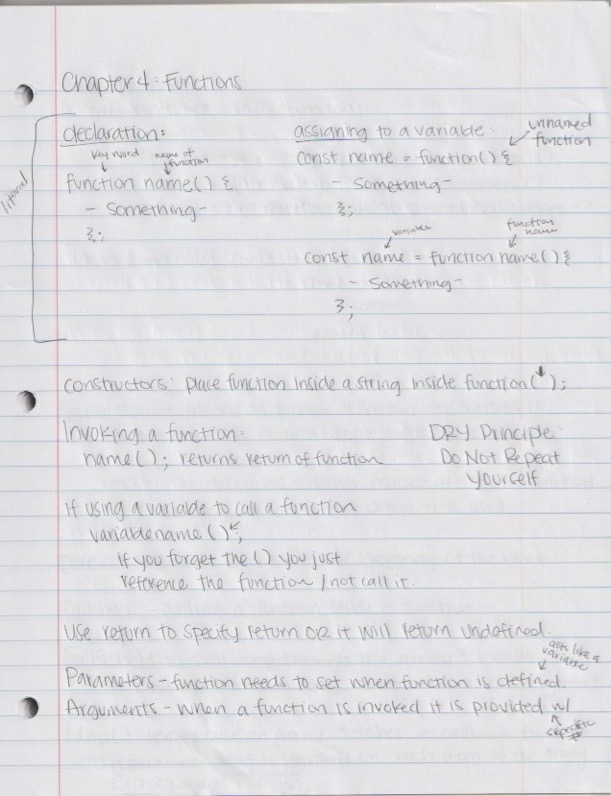 Chapter 4: Functions
literal
declaration:
key word
name of function
function name() {
- Something -
};
assigning to a variable:
unnamed function
const name = function() {
- Something -
};
variable
function name
const name = function name() {
- Something -
};
constructors: place function inside a string inside function( );
Invoking a function:
name(); returns return of function
DRY Principle:
Do Not Repeat
Yourself
if using a variable to call a function
variablename();
If you forget the () you just
reference the function / not call it.
Use return to specify return or it will return undefined.
acts like a variable
Parameters - function needs to set when function is defined.
Arguments - when a function is invoked it is provided w/